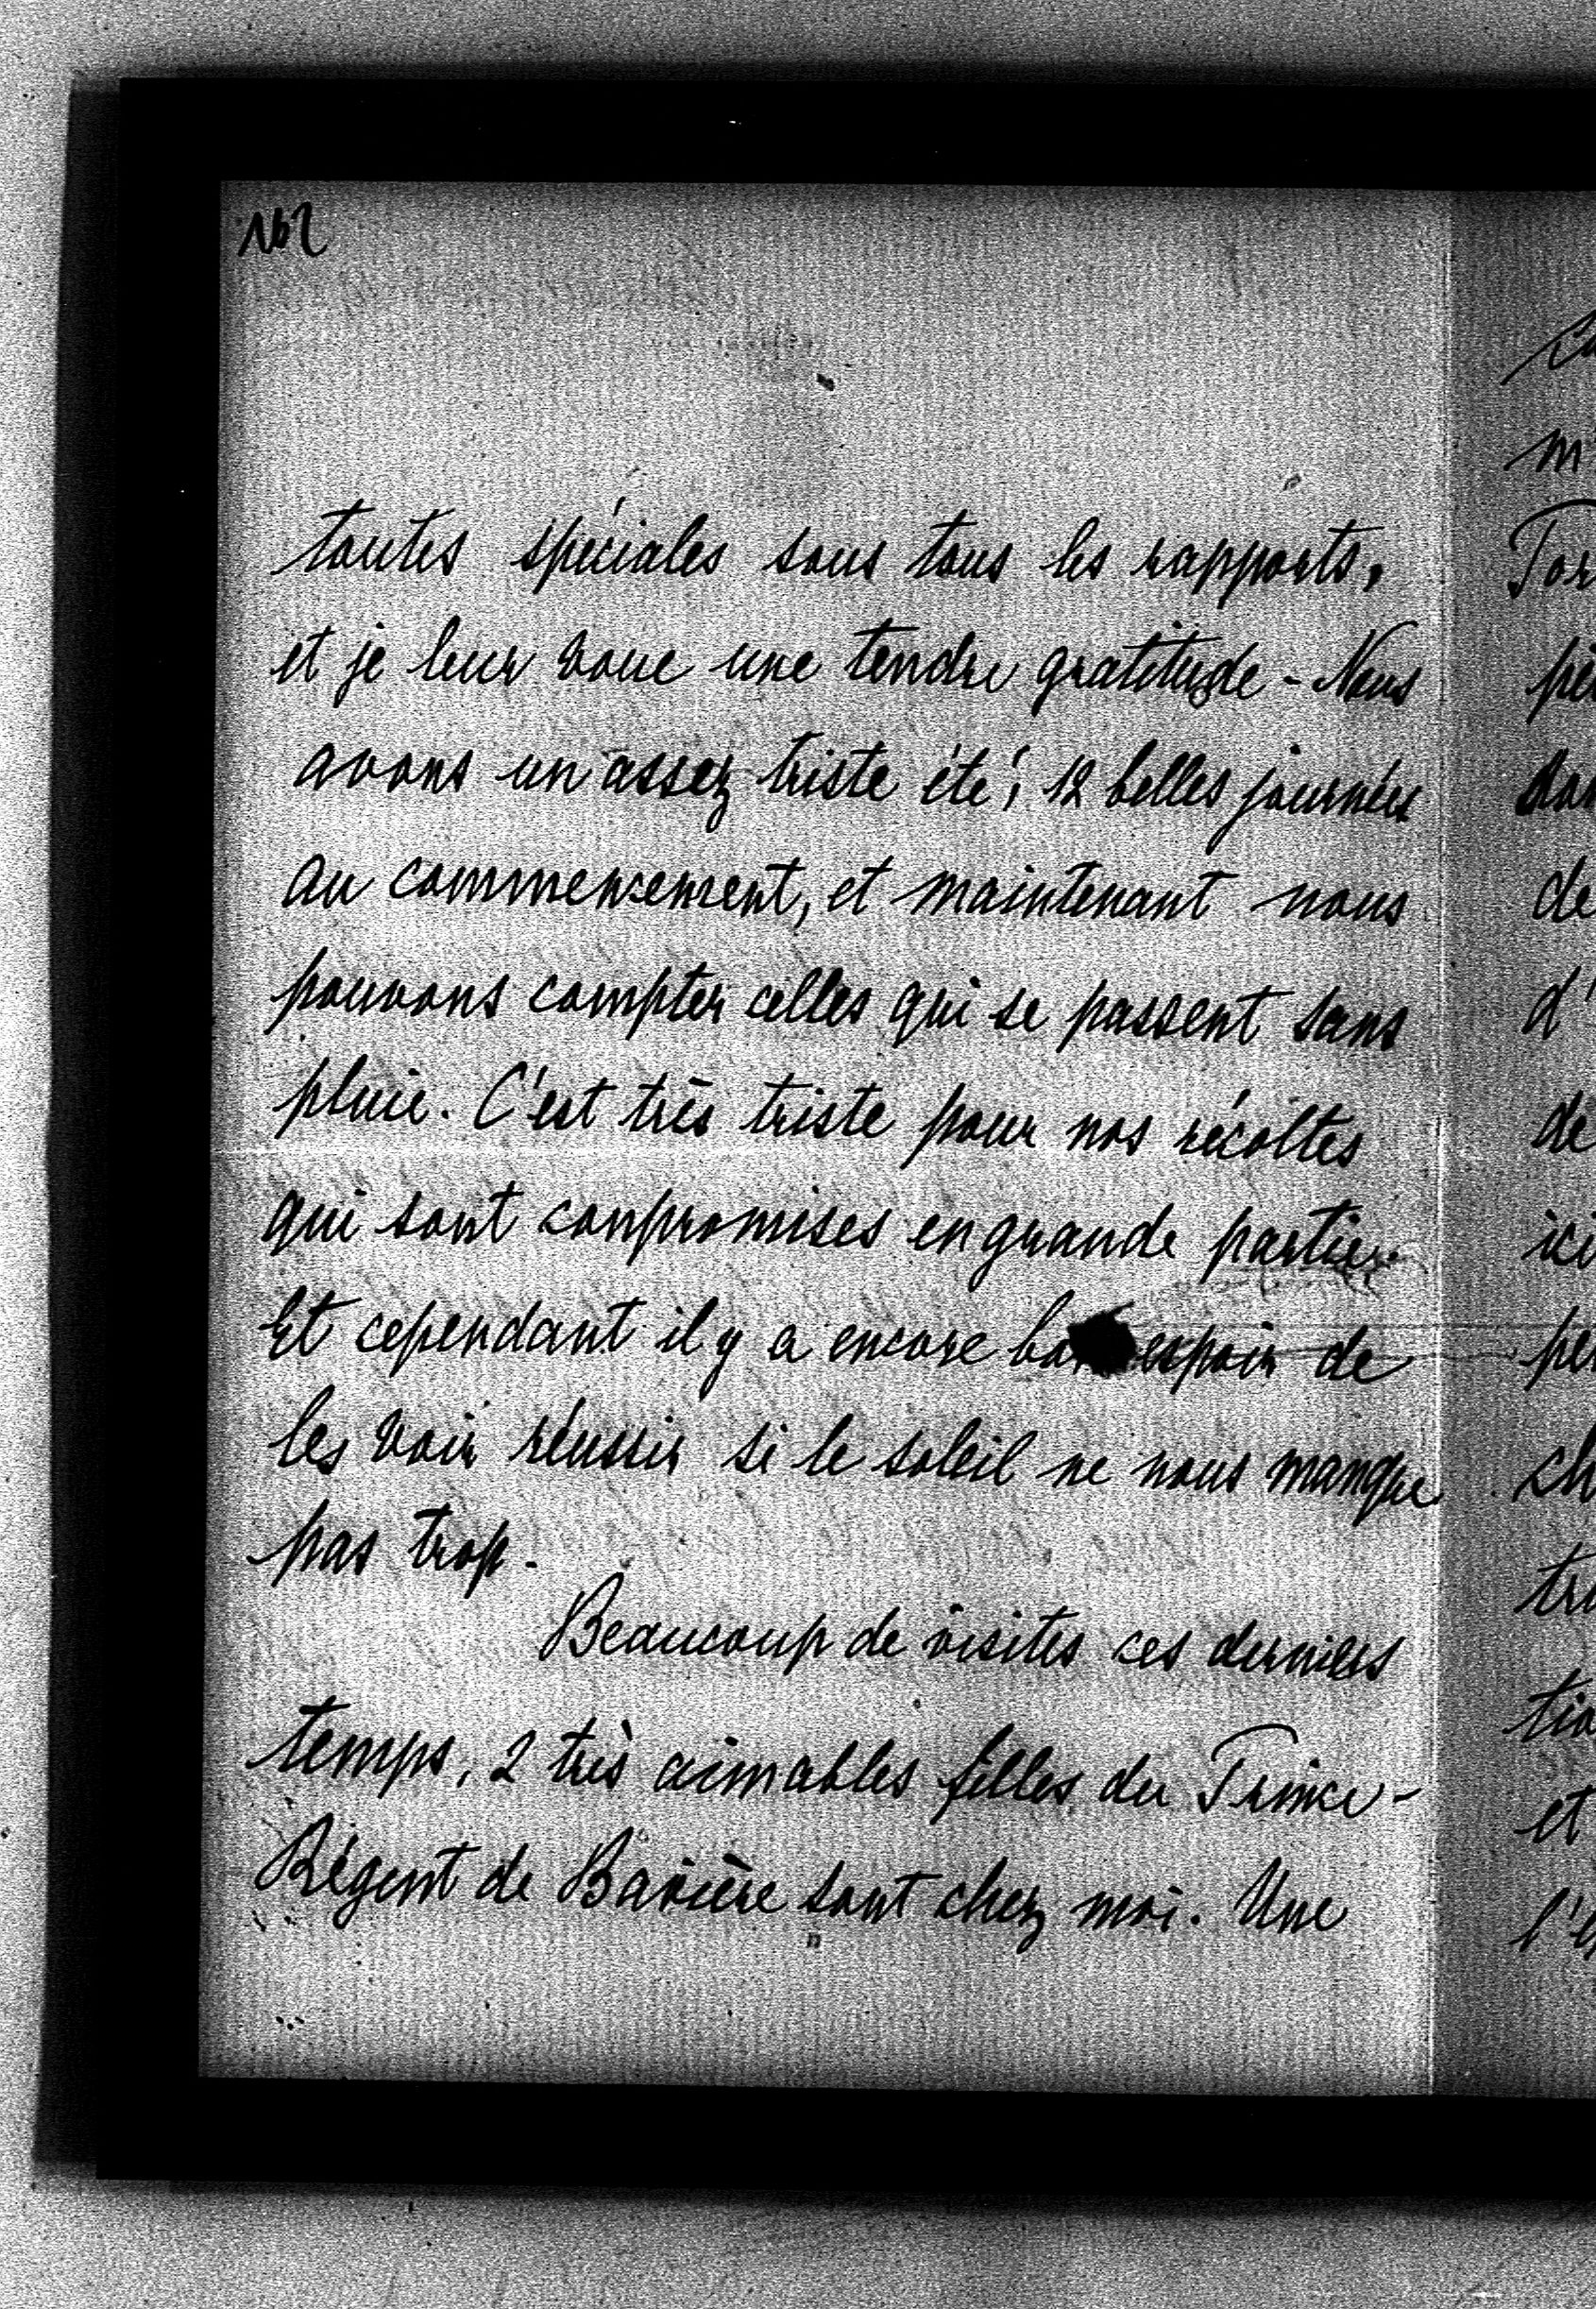 162
toutes spéciales sous tous les rapports,
et je leur voue une tendre gratitude - Nous
avons un assez triste été; 12 belles journées
au commencement, et maintenant nous
pouvons compter celles qui se passent sans
pluie. C'est très triste pour nos récoltes
qui sont conpromises en grande partie.
Et cependant il y a encore bon espoir de
les voir réussir si le soleil ne nous manque
pas trop.
Beaucoup de visites ces derniers
temps, 2 très aimables filles du Prince-
Régent de Bavière sont chez moi. Une